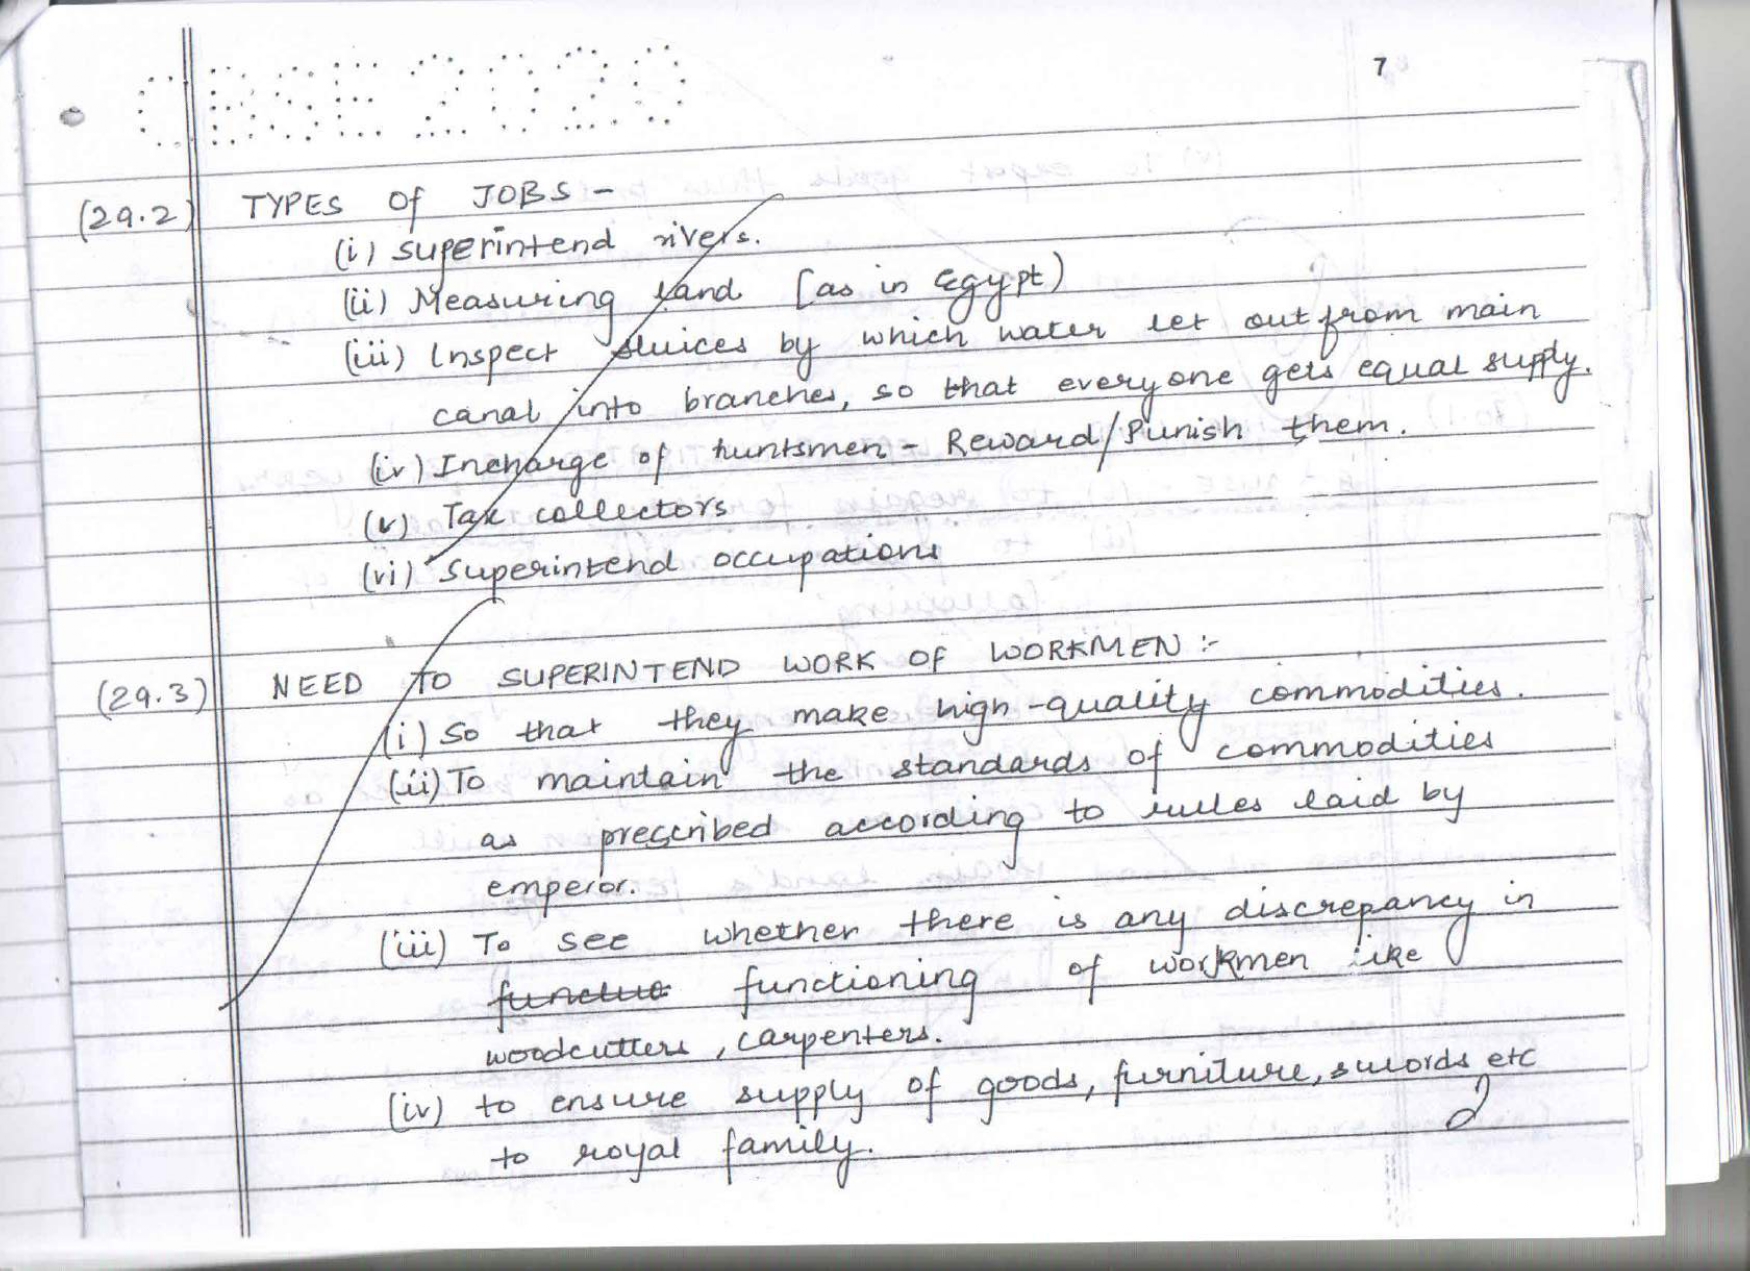 CBSE 2020
7
(29.2) TYPES Of JOBS -
(i) superintend rivers.
(ii) Measuring land (as in Egypt)
(iii) Inspect sluices by which water let out from main
canal into branches, so that everyone gets equal supply.
(iv) Incharge of huntsmen - Reward/Punish them.
(v) Tax collectors
(vi) Superintend occupations
(29.3) NEED TO SUPERINTEND WORK OF WORKMEN :-
(i) So that they make high-quality commodities.
(ii) To maintain the standards of commodities
as prescribed according to rules laid by
emperor.
(iii) To see whether there is any discrepancy in
functio functioning of workmen like
woodcutters, carpenters.
(iv) to ensure supply of goods, furniture, swords etc
to royal family.